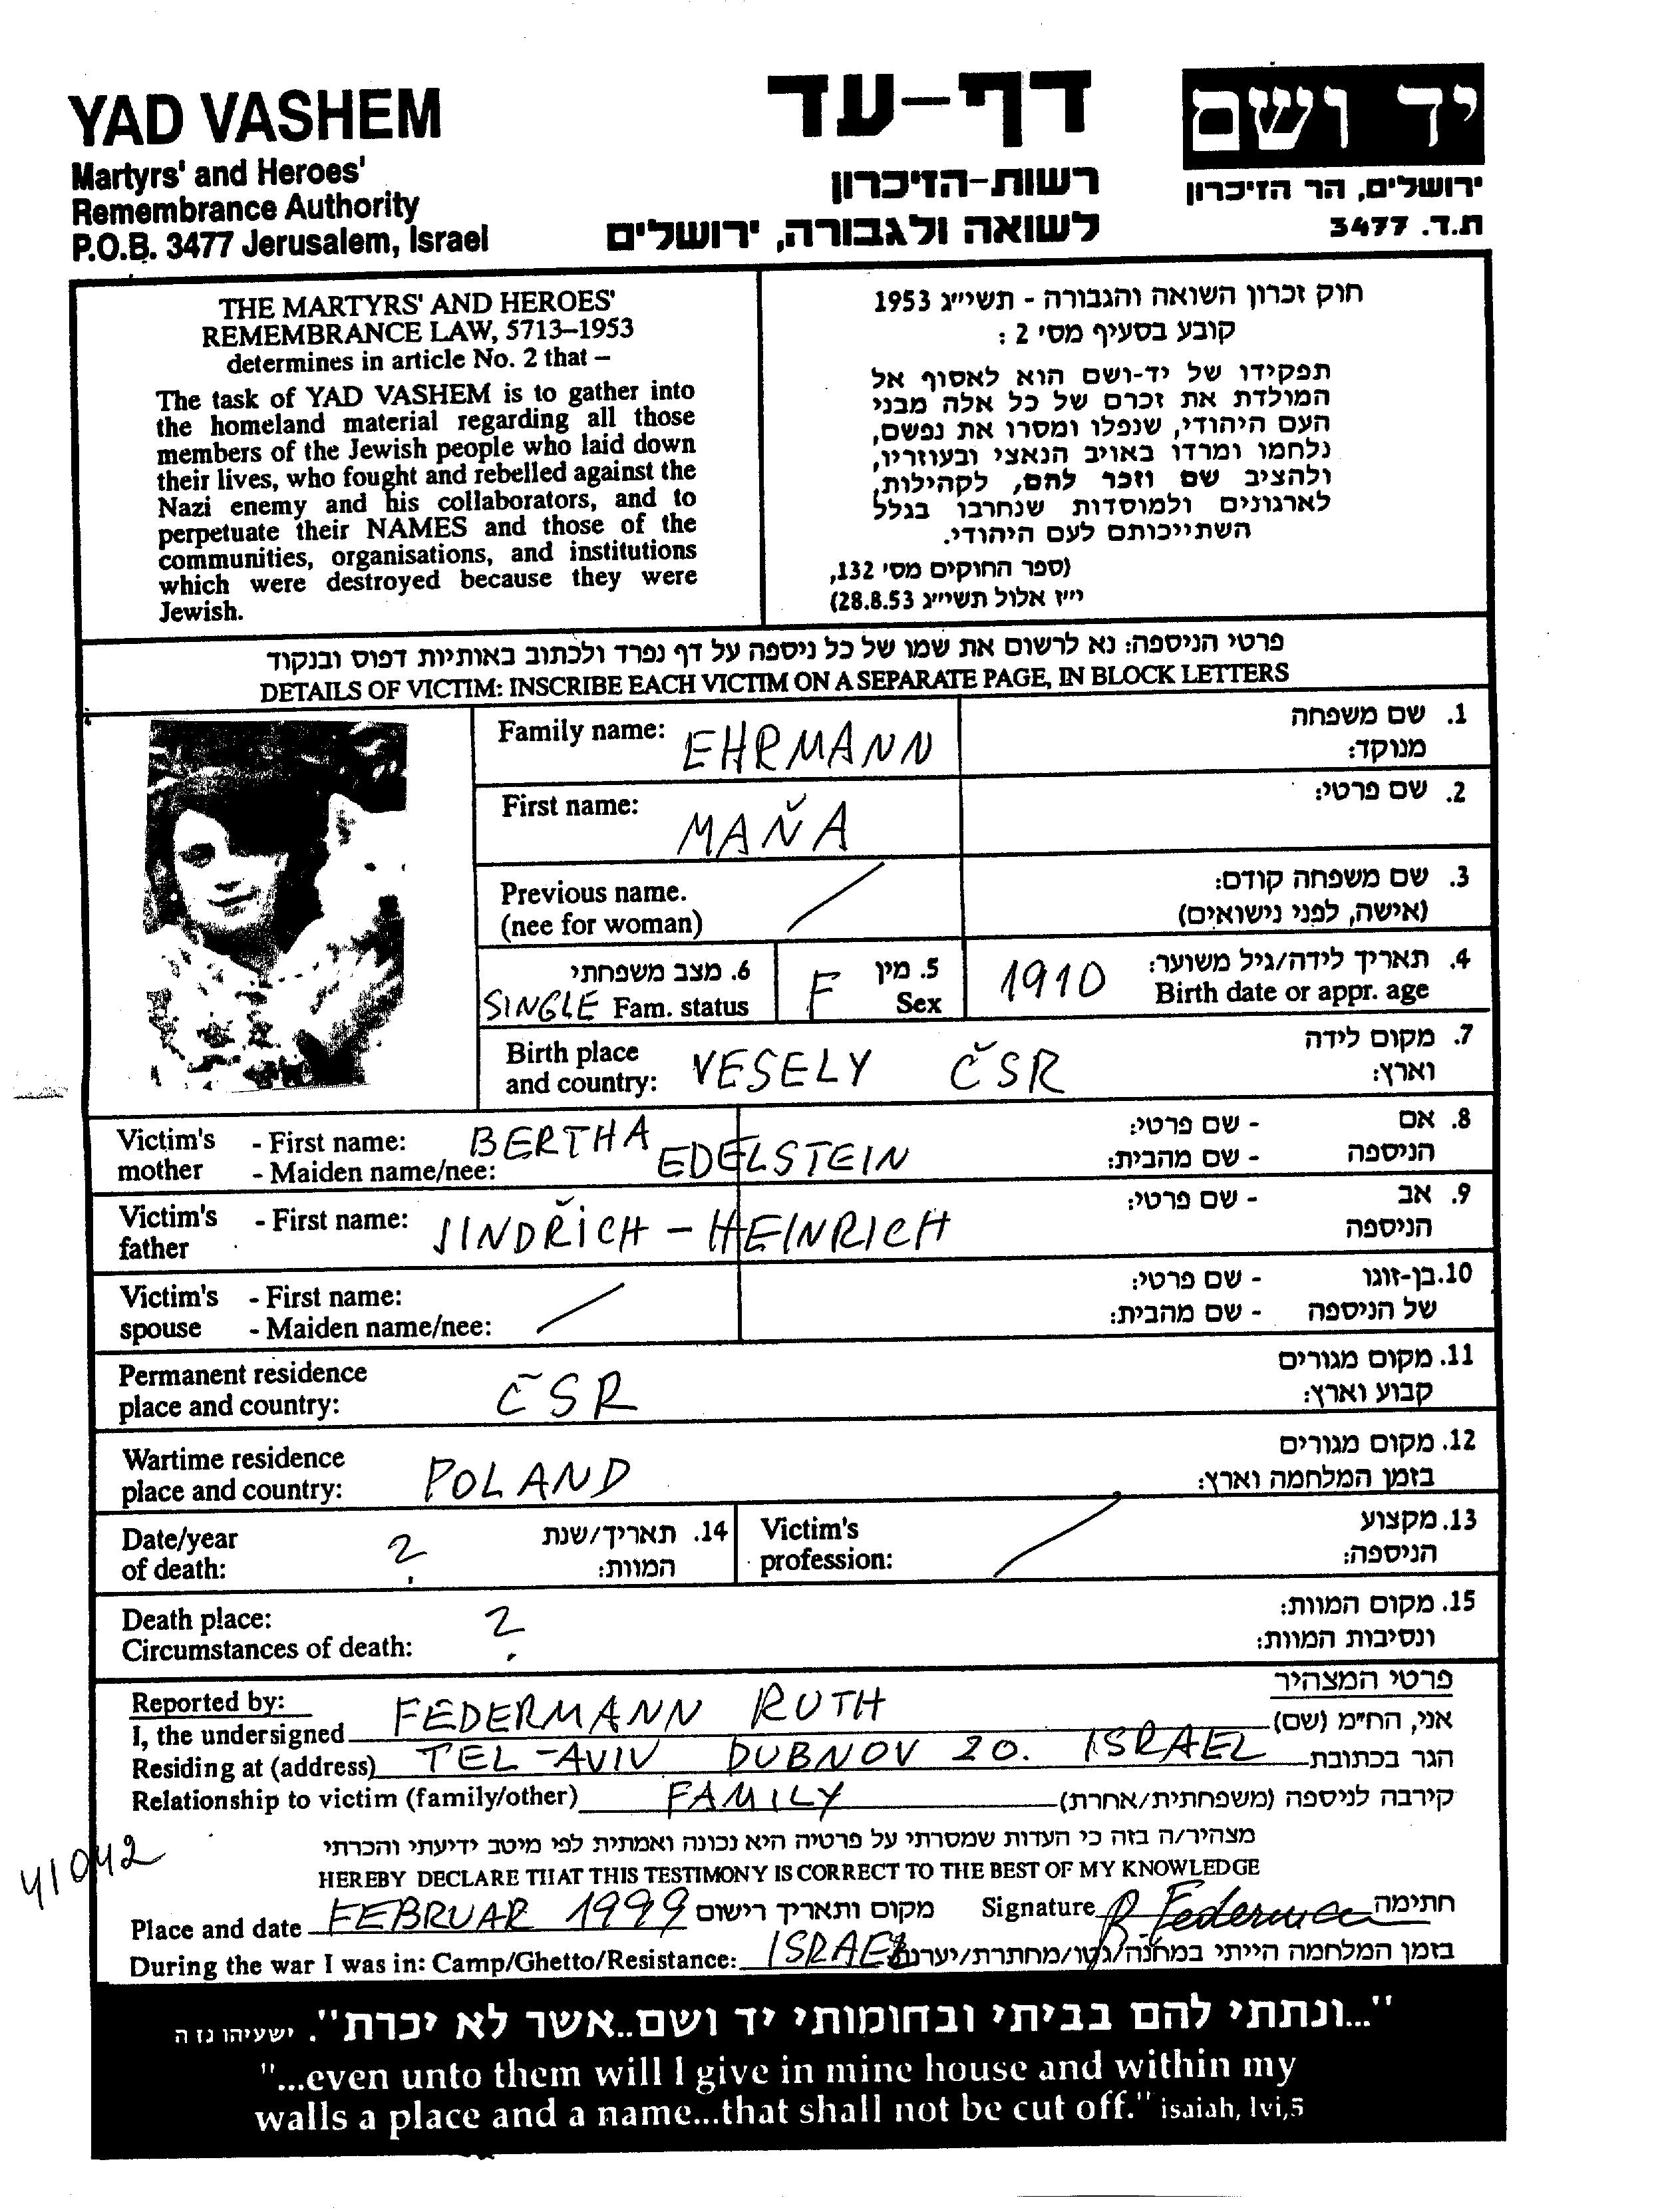 YAD VASHEM
Martyrs' and Heroes'
Remembrance Authority
P.O.B. 3477 Jerusalem, Israel
דף-עד
רשות-הזיכרון
לשואה ולגבורה, ירושלים
יד ושם
ירושלים, הר הזיכרון
ת.ד. 3477
THE MARTYRS' AND HEROES'
REMEMBRANCE LAW, 5713–1953
determines in article No. 2 that –
The task of YAD VASHEM is to gather into
the homeland material regarding all those
members of the Jewish people who laid down
their lives, who fought and rebelled against the
Nazi enemy and his collaborators, and to
perpetuate their NAMES and those of the
communities, organisations, and institutions
which were destroyed because they were
Jewish.
חוק זכרון השואה והגבורה - תשי״ג 1953
קובע בסעיף מס׳ 2 :
תפקידו של יד-ושם הוא לאסוף אל
המולדת את זכרם של כל אלה מבני
העם היהודי, שנפלו ומסרו את נפשם,
נלחמו ומרדו באויב הנאצי ובעוזריו,
ולהציב שם וזכר להם, לקהילות,
לארגונים ולמוסדות שנחרבו בגלל
השתייכותם לעם היהודי.
(ספר החוקים מס׳ 132,
י״ז אלול תשי״ג 28.8.53)
פרטי הניספה: נא לרשום את שמו של כל ניספה על דף נפרד ולכתוב באותיות דפוס ובנקוד
DETAILS OF VICTIM: INSCRIBE EACH VICTIM ON A SEPARATE PAGE, IN BLOCK LETTERS
Family name: EHRMANN 1. שם משפחה
מנוקד:
First name: MAŇA 2. שם פרטי:
Previous name. 3. שם משפחה קודם:
(nee for woman) (אישה, לפני נישואים)
6. מצב משפחתי 5. מין 4. תאריך לידה/גיל משוער:
SINGLE Fam. status F Sex 1910 Birth date or appr. age
Birth place 7. מקום לידה
and country: VESELY ČSR וארץ:
Victim's - First name: BERTHA - שם פרטי: 8. אם
mother - Maiden name/nee: EDELSTEIN - שם מהבית: הניספה
Victim's - First name: JINDŘICH - HEINRICH - שם פרטי: 9. אב
father הניספה
Victim's - First name: - שם פרטי: 10. בן-זוגו
spouse - Maiden name/nee: - שם מהבית: של הניספה
Permanent residence 11. מקום מגורים
place and country: ČSR קבוע וארץ:
Wartime residence 12. מקום מגורים
place and country: POLAND בזמן המלחמה וארץ:
Date/year ? 14. תאריך/שנת Victim's 13. מקצוע
of death: המוות: profession: הניספה:
Death place: ? 15. מקום המוות:
Circumstances of death: ונסיבות המוות:
Reported by: פרטי המצהיר
I, the undersigned FEDERMANN RUTH אני, הח״מ (שם)
Residing at (address) TEL-AVIV DUBNOV 20. ISRAEL הגר בכתובת
Relationship to victim (family/other) FAMILY קירבה לניספה (משפחתית/אחרת)
41042
מצהיר/ה בזה כי העדות שמסרתי על פרטיה היא נכונה ואמתית לפי מיטב ידיעתי והכרתי
HEREBY DECLARE THAT THIS TESTIMONY IS CORRECT TO THE BEST OF MY KNOWLEDGE
Place and date FEBRUAR 1999 מקום ותאריך רישום Signature R. Federmann חתימה
During the war I was in: Camp/Ghetto/Resistance: ISRAEL בזמן המלחמה הייתי במחנה/גטו/מחתרת/יערות
"...ונתתי להם בביתי ובחומותי יד ושם..אשר לא יכרת". ישעיהו נו ה
"...even unto them will I give in mine house and within my
walls a place and a name...that shall not be cut off." isaiah, lvi,5